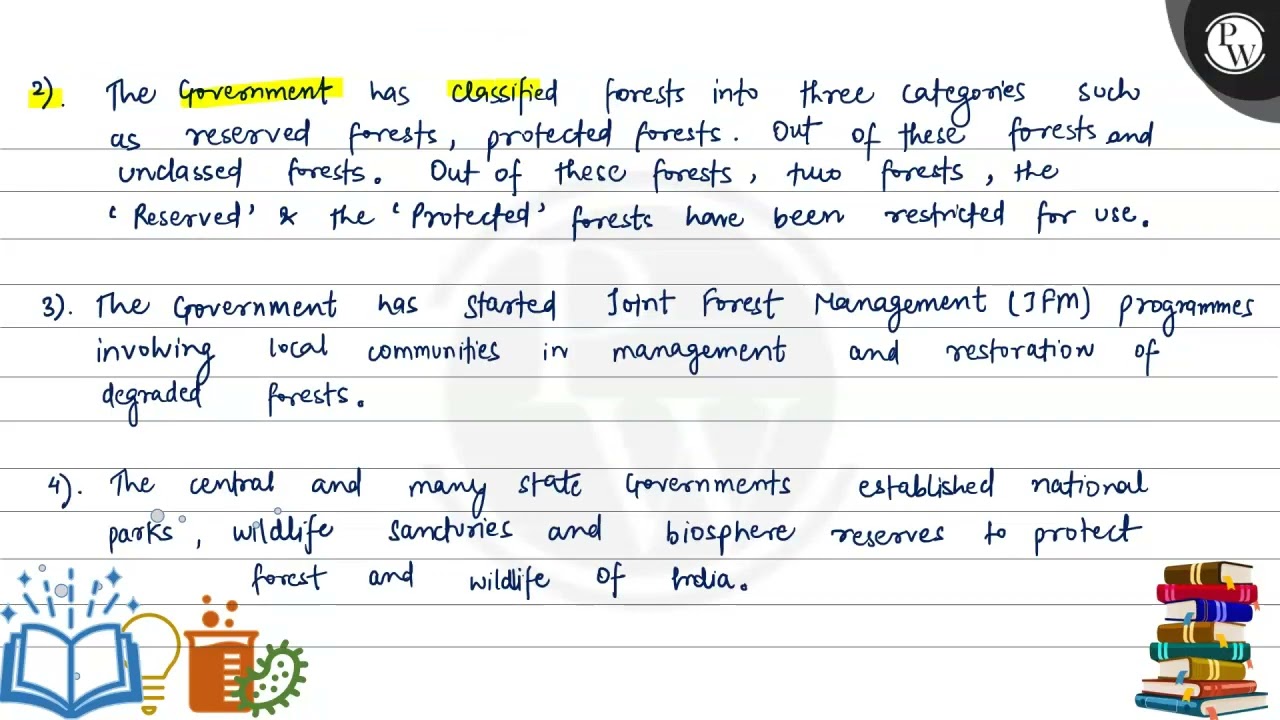 PW
2). The Government has classified forests into three categories such
as reserved forests, protected forests. Out of these forests and
unclassed forests. Out of these forests, two forests, the
'Reserved' & the 'Protected' forests have been restricted for use.
3). The Government has started Joint Forest Management (JFM) programmes
involving local communities in management and restoration of
degraded forests.
4). The central and many state Governments established national
parks, wildlife sancturies and biosphere reserves to protect
forest and wildlife of India.
PW